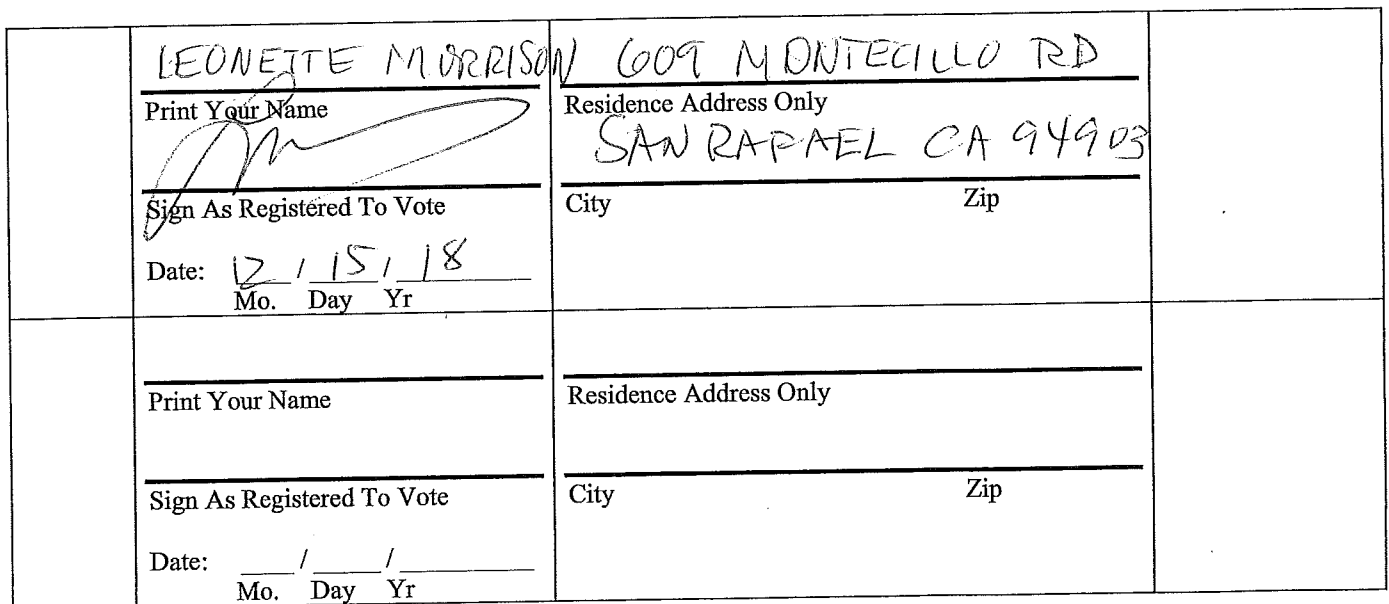 LEONETTE MORRISON 609 MONTECILLO RD
Print Your Name Residence Address Only
SAN RAFAEL CA 94903
Sign As Registered To Vote City Zip
Date: 12 / 15 / 18
Mo. Day Yr
Print Your Name Residence Address Only
Sign As Registered To Vote City Zip
Date: ___/____/______
Mo. Day Yr